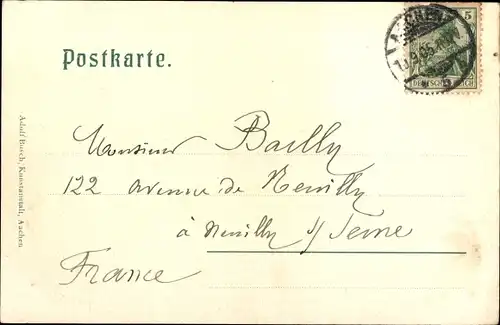 Postkarte.
5
AACHEN
DEUTSCHES REICH
Monsieur Bailly
122 avenue de Neuilly
à Neuilly s/ Seine
France
Adolf Busch, Kunstanstalt, Aachen